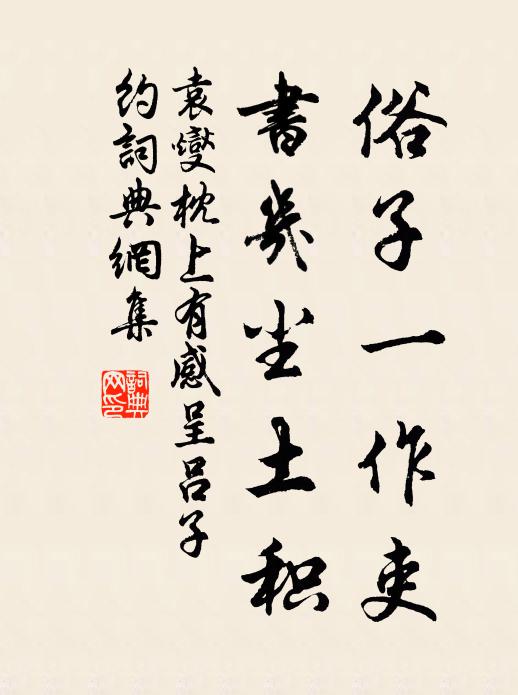 俗子一作吏
書幾尘土积
袁燮枕上有感呈吕子
约詞典網集
詞典
网印